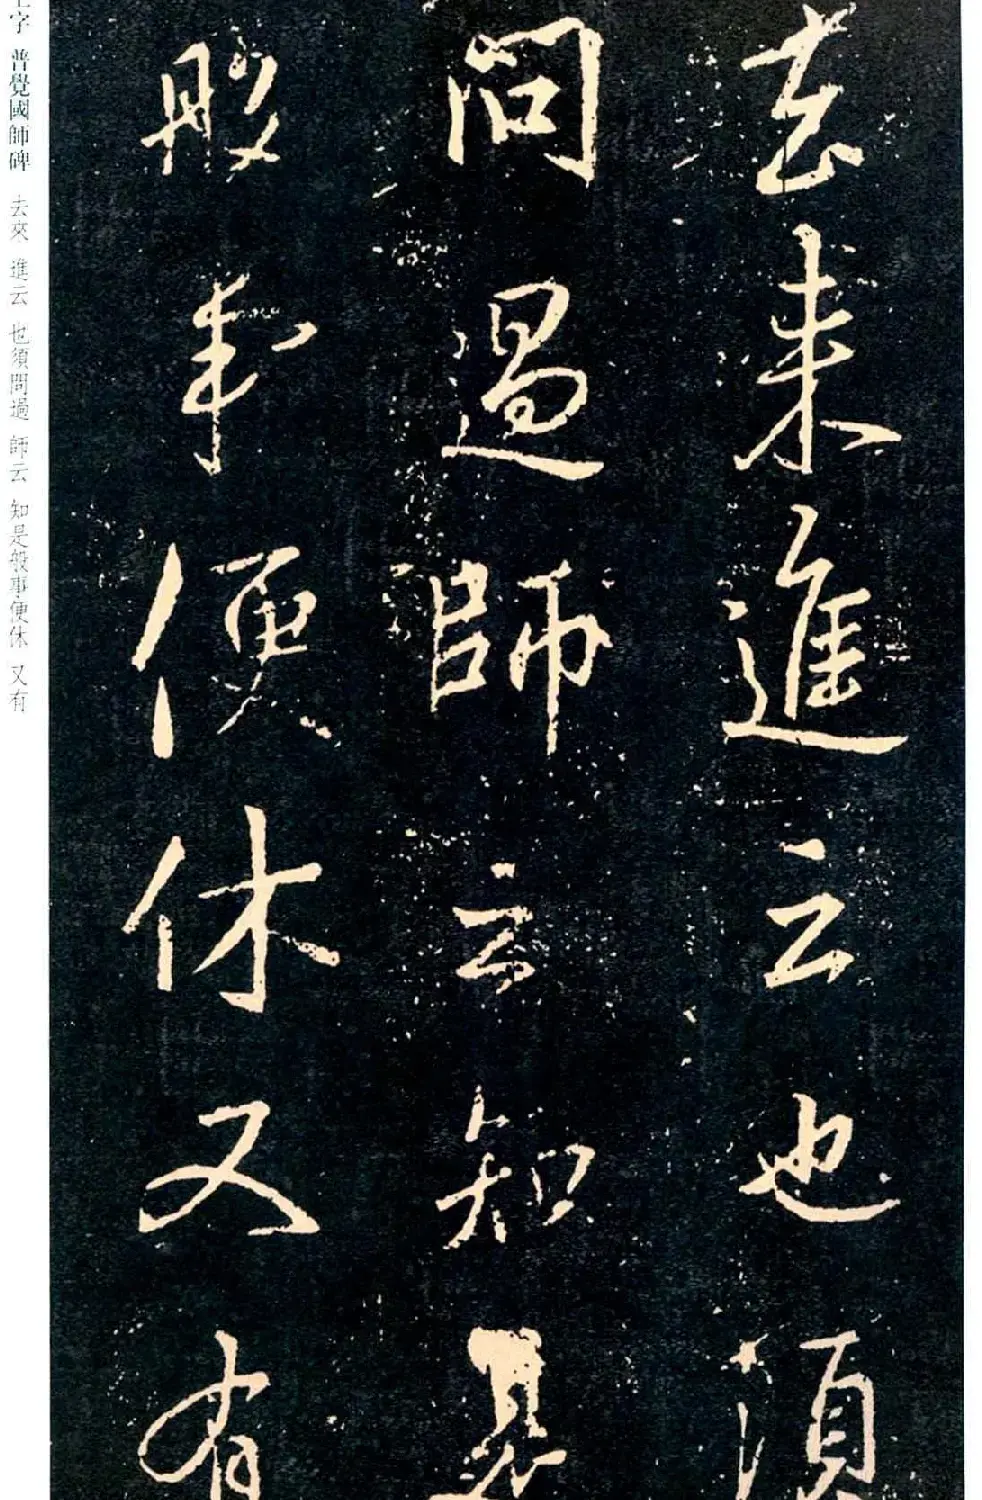 去来進云也須
問過師云知是
般事便休又有
字 普覺國師碑 去來 進云 也須問過 師云 知是般事便休 又有